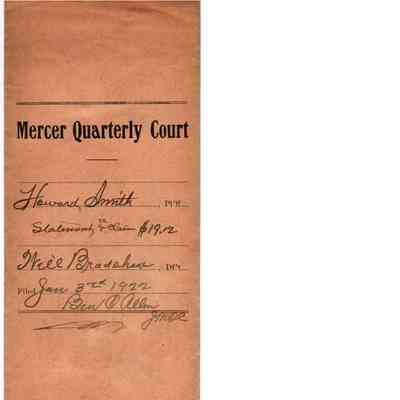 Mercer Quarterly Court
Howard Smith, Pl'ff.
Statement & Claim $19.12
Will Bradshaw, Def't
Filed Jan 3rd 1922
Ben C Allen